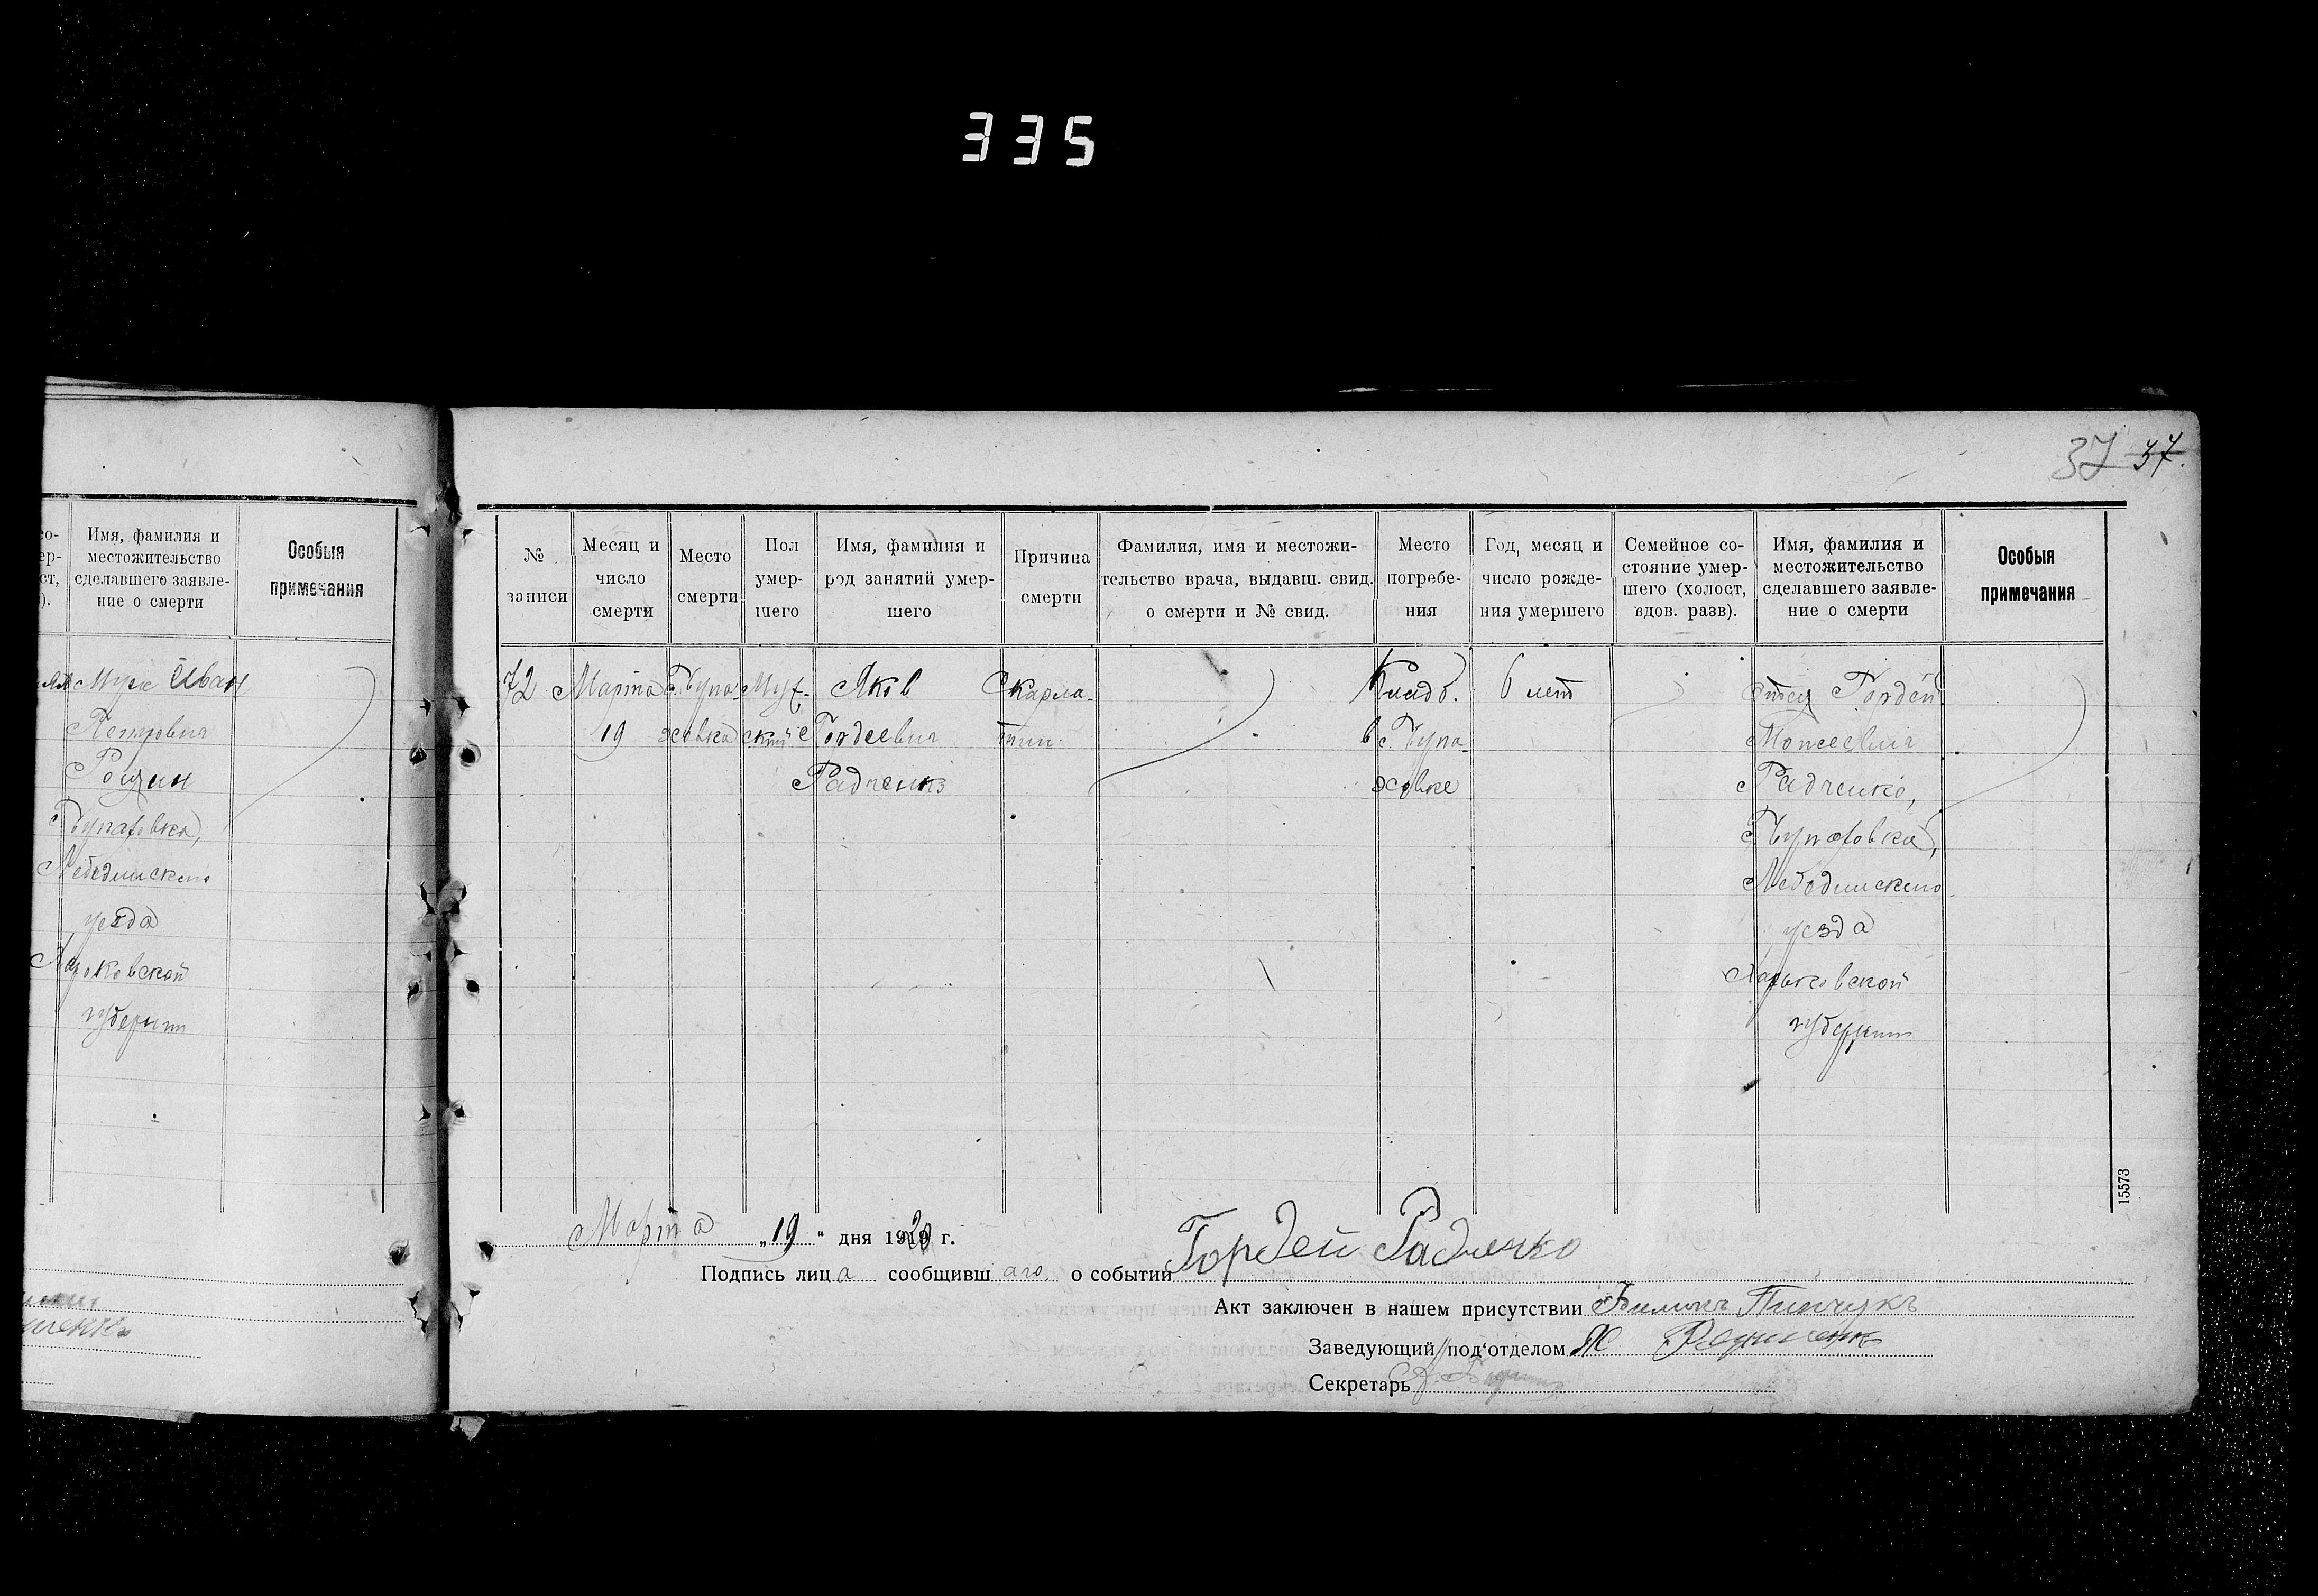 335
37 37.
со-
ер-
ст,
).
Имя, фамилия и
местожительство
сделавшего заявле-
ние о смерти
Особыя
примечания
Муж Иван
Петрович
Рощин
Лебединскаго
уезда
губернии
№
записи
Месяц и
число
смерти
Место
смерти
Пол
умер-
шего
Имя, фамилия и
род занятий умер-
шего
Причина
смерти
Фамилия, имя и местожи-
тельство врача, выдавш. свид.
о смерти и № свид.
Место
погребе-
ния
Год, месяц и
число рожде-
ния умершего
Семейное со-
стояние умер-
шего (холост,
вдов. разв).
Имя, фамилия и
местожительство
сделавшего заявле-
ние о смерти
Особыя
примечания
72
Марта
19
Муж-
ской
Яков
Гордеевич
Радченко
Скарла-
тин
Кладб.
6 лет
отец Гордей
Моисеевич
Радченко,
Лебединскаго
уезда
Харьковской
губернии
15573
Марта „19“ дня 1920 г.
Подпись лица сообщившаго о событии Гордей Радченко
Акт заключен в нашем присутствии
Заведующий под‘отделом
Секретарь